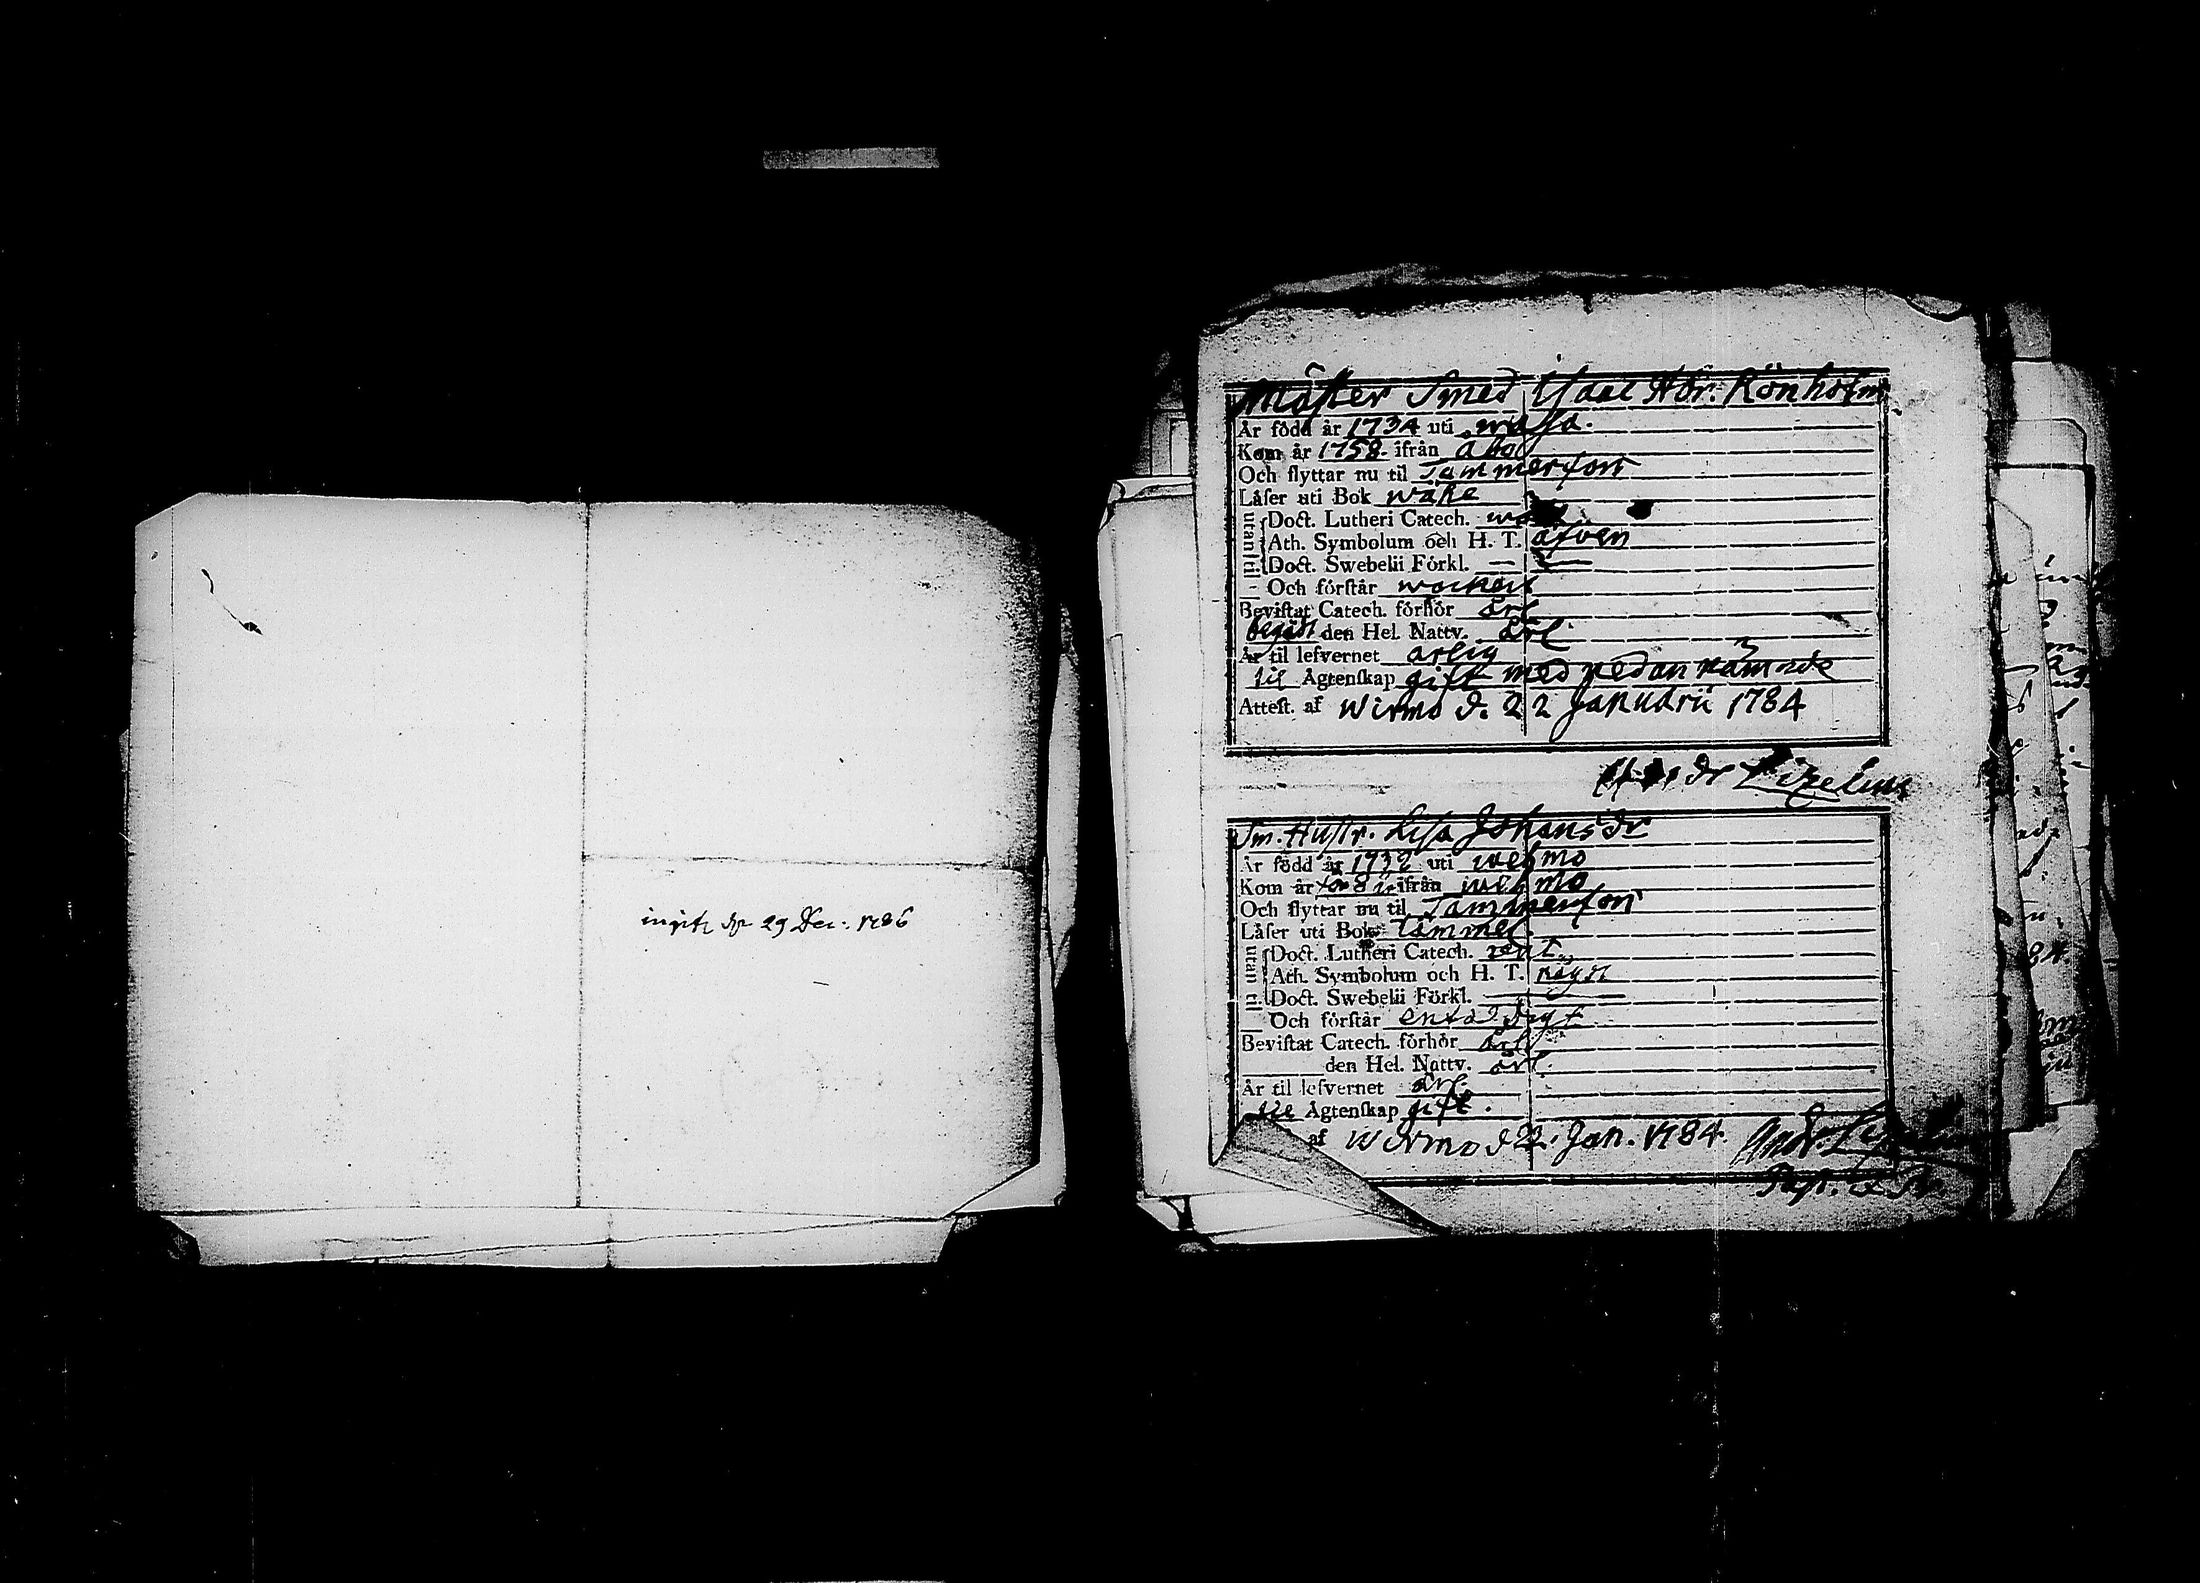 ingifv. d. 29 Dec. 1786
Mäster Smed Isaac Abr. Rönholm
Är född år 1734 uti wasa.
Kom år 1758 ifrån Åbo
Och flyttar nu til Tammerfors
Läser uti Bok wake
utan til
Doct. Lutheri Catech.
Ath. Symbolum och H. T. äfven
Doct. Swebelii Förkl. —
Och förstår wackert
Bevistat Catech. förhör ärl
begådt den Hel. Nattv. ärl
Är til lefvernet ärlig
til Ägtenskap gift med nedan nämnde
Attest. af Wirmo d. 22 Januarii 1784
Andr Lizelius
Sm. Hustr. Lisa Johansdr
Är född år 1732 uti wehmo
Kom år ifrån wehmo
Och flyttar nu til Tammerfors
Läser uti Bok
utan til
Doct. Lutheri Catech. rent
Ath. Symbolum och H. T. någdt
Doct. Swebelii Förkl. —
Och förstår
Bevistat Catech. förhör ärl
den Hel. Nattv. ärl.
Är til lefvernet ärl.
til Ägtenskap gift.
af Wirmo d 22. Jan. 1784. Andr. Lizelius
Past.